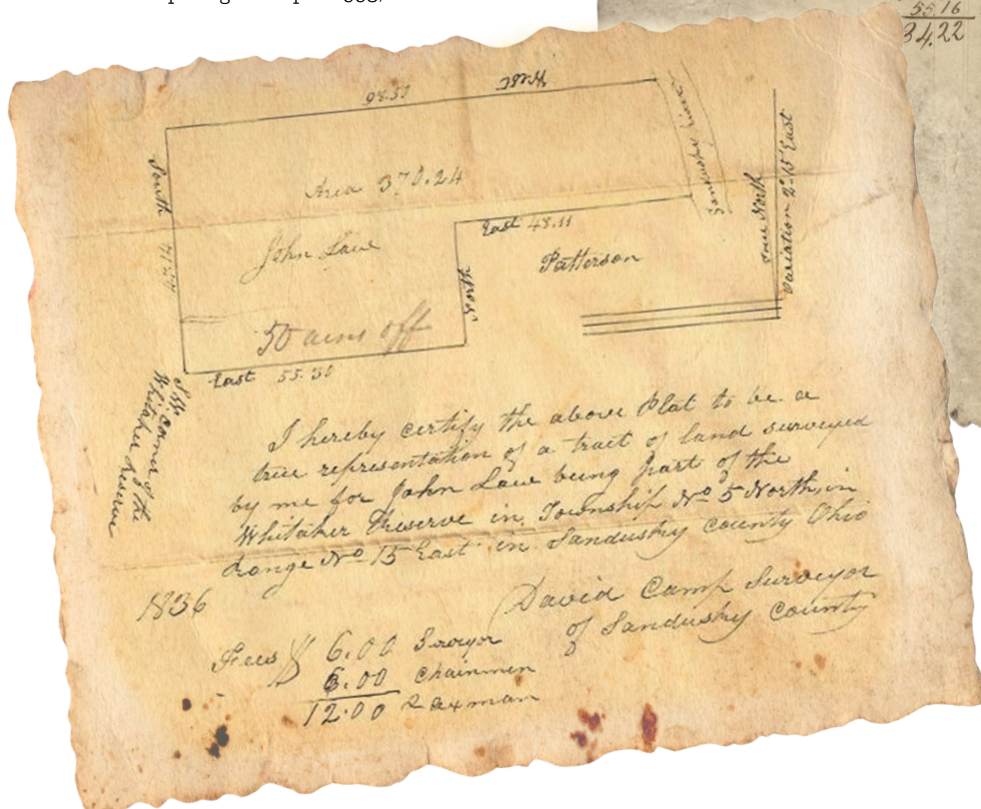 55.16
34.22
98.51 West
Sandusky River
South
Area 370.24
East 48.11
John Lawe
Patterson
True North
Variation 2° 15' East
North
50 acres off
East 55.30
S.W. Corner of the
Whitaker Reserve
I hereby certify the above Plat to be a
true representation of a tract of land surveyed
by me for John Lawe being part of the
Whitaker Reserve in Township No 5 North, in
Range No 15 East in Sandusky County Ohio
1836
David Camp Surveyor
of Sandusky County
Fees $ 6.00 Surveyor
6.00 Chainmen
12.00 & axman